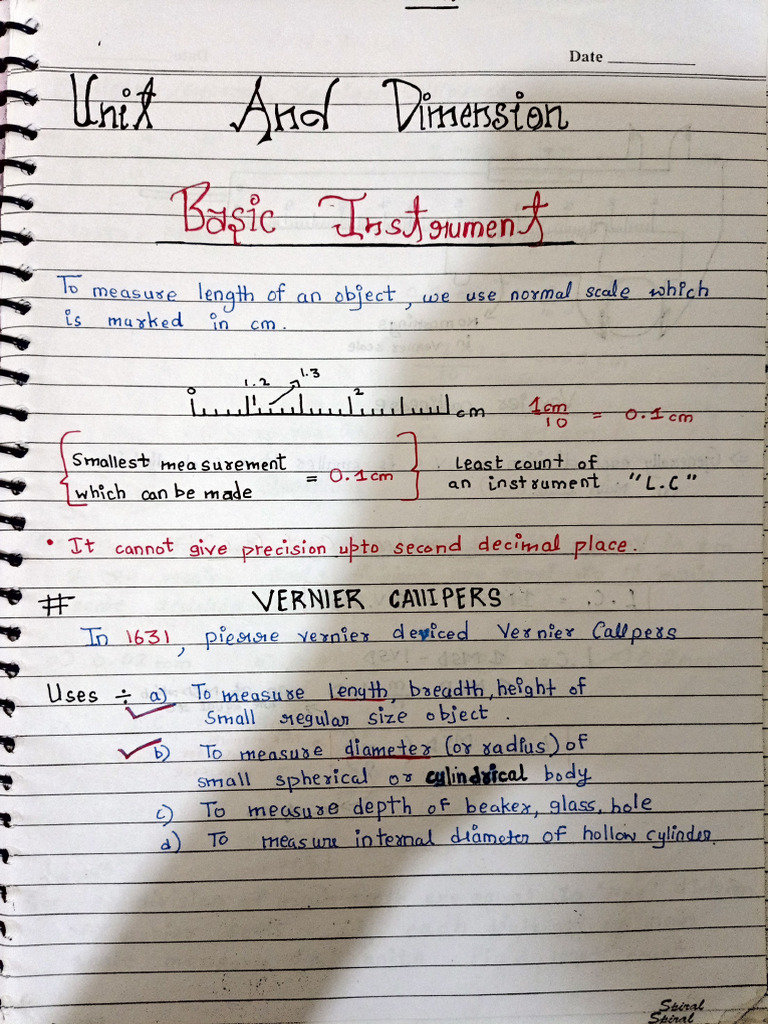 Date
Unit And Dimension
Basic Instrument
To measure length of an object, we use normal scale which
is marked in cm.
0 1.2 1.3 2 cm 1cm/10 = 0.1cm
Smallest measurement which can be made = 0.1cm
Least count of an instrument "L.C"
• It cannot give precision upto second decimal place.
# VERNIER CAllIPERS
In 1631, pierre vernier deviced Vernier Callpers
Uses ÷ a) To measure length, breadth, height of
small regular size object.
b) To measure diameter (or radius) of
small spherical or cylindrical body
c) To measure depth of beaker, glass, hole
d) To measure internal diameter of hollow cylinder.
Spiral
Spiral